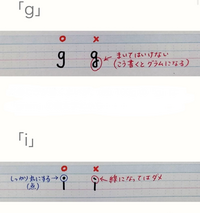 「g」
○ ×
g g ← まいてはいけない
(こう書くとグラムになる)
「i」
○ ×
しっかり丸にする→ i i ←線になってはダメ
(点)